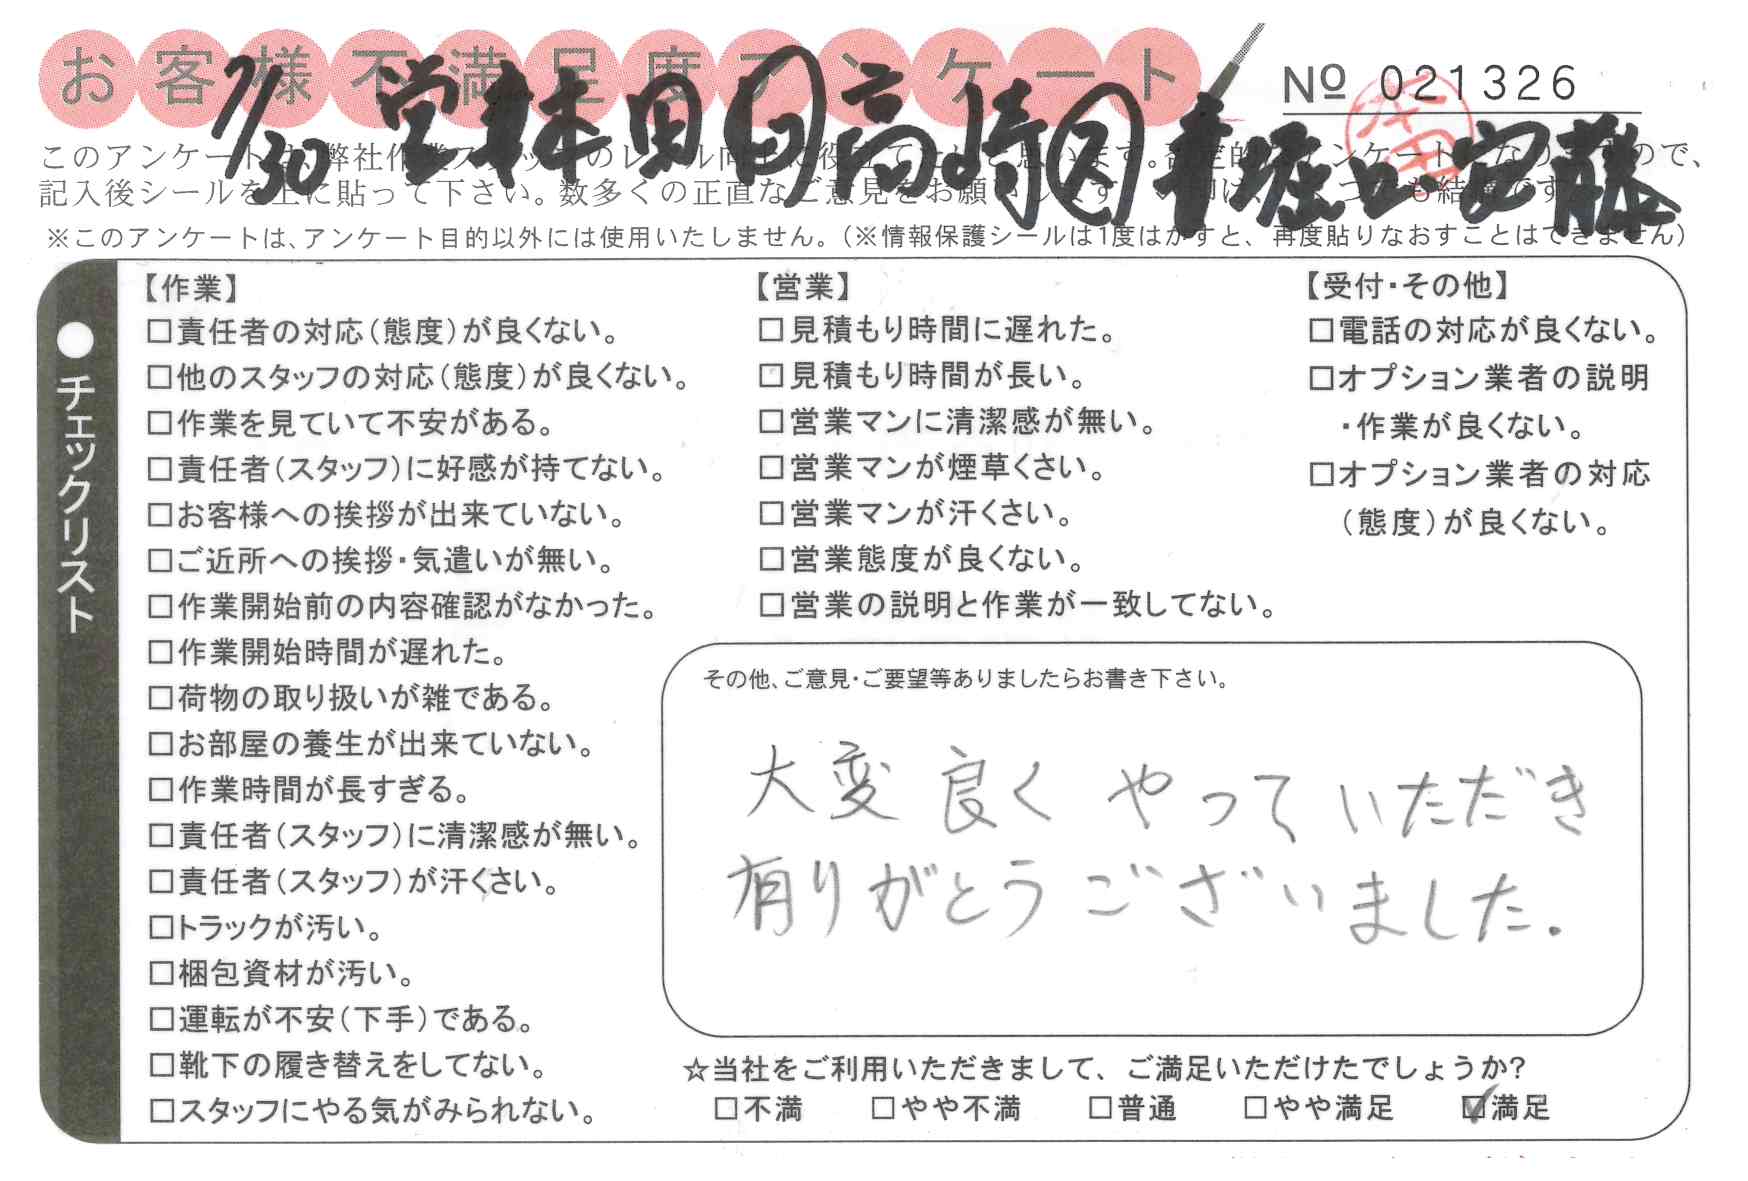 お客様不満足度アンケート
№ 021326
7/30 営 林田 日高 時 青堀 口 安藤
このアンケートは、弊社作業スタッフのレベル向上に役立てたいと思います。否定的なアンケートになりますので、
記入後シールを上に貼って下さい。数多くの正直なご意見をお願いします。
※このアンケートは、アンケート目的以外には使用いたしません。（※情報保護シールは1度はがすと、再度貼りなおすことはできません）
●チェックリスト
【作業】
□責任者の対応（態度）が良くない。
□他のスタッフの対応（態度）が良くない。
□作業を見ていて不安がある。
□責任者（スタッフ）に好感が持てない。
□お客様への挨拶が出来ていない。
□ご近所への挨拶・気遣いが無い。
□作業開始前の内容確認がなかった。
□作業開始時間が遅れた。
□荷物の取り扱いが雑である。
□お部屋の養生が出来ていない。
□作業時間が長すぎる。
□責任者（スタッフ）に清潔感が無い。
□責任者（スタッフ）が汗くさい。
□トラックが汚い。
□梱包資材が汚い。
□運転が不安（下手）である。
□靴下の履き替えをしてない。
□スタッフにやる気がみられない。
【営業】
□見積もり時間に遅れた。
□見積もり時間が長い。
□営業マンに清潔感が無い。
□営業マンが煙草くさい。
□営業マンが汗くさい。
□営業態度が良くない。
□営業の説明と作業が一致してない。
【受付・その他】
□電話の対応が良くない。
□オプション業者の説明
・作業が良くない。
□オプション業者の対応
（態度）が良くない。
その他、ご意見・ご要望等ありましたらお書き下さい。
大変良くやっていただき
有りがとうございました.
☆当社をご利用いただきまして、ご満足いただけたでしょうか?
□不満 □やや不満 □普通 □やや満足 ☑満足